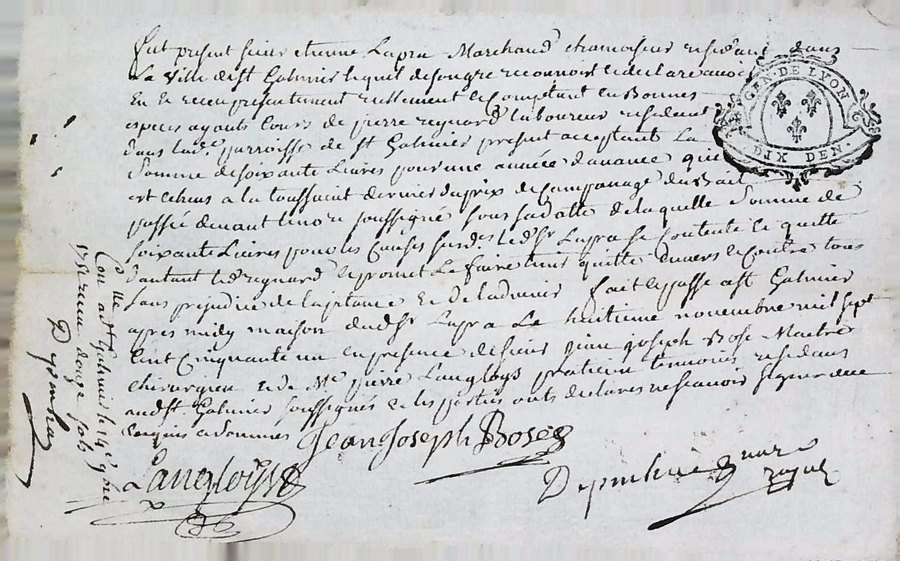 fut present sieur etienne Lapra Marchand chamoiseur residant dans
La Ville de st Galmier lequel de son gre reconnoit et declare avoir
Eu et receu presentement reellement et Comptant en Bonnes
especes ayants Cours de pierre reynard laboureur residant
dans lad. parroisse de st Galmier present acceptant La
Somme de soixante Livres pour une année d'avance qui
est echus a la toussaint dernier du prix de du Bail
passée devant le no.re soussigné sous sa datte de laquelle Somme de
soixante Livres pour les Causes susdes led. Sr Lapra se Contente et quitte
d'autant led. reynard et promet Le faire tenir quitte envers et Contre tous
sans prejudice de et de fait et passe a st Galmier
apres midy maison dud. Sr Lapra Le huitieme novembre mil sept
Cent Cinquante un en presence de sieur jean joseph Bose Maitre
chirurgien et de Me pierre Langloys praticien temoins residans
aud. st Galmier soussignés et les parties onts declares ne scavoir signer de ce
enquis et sommes
Jean Joseph Bose
Langloys
nore
royal
GEN. DE LYON
DIX DEN.
Con.lle a st Galmier le 14e 9bre
1751 receu douze sols